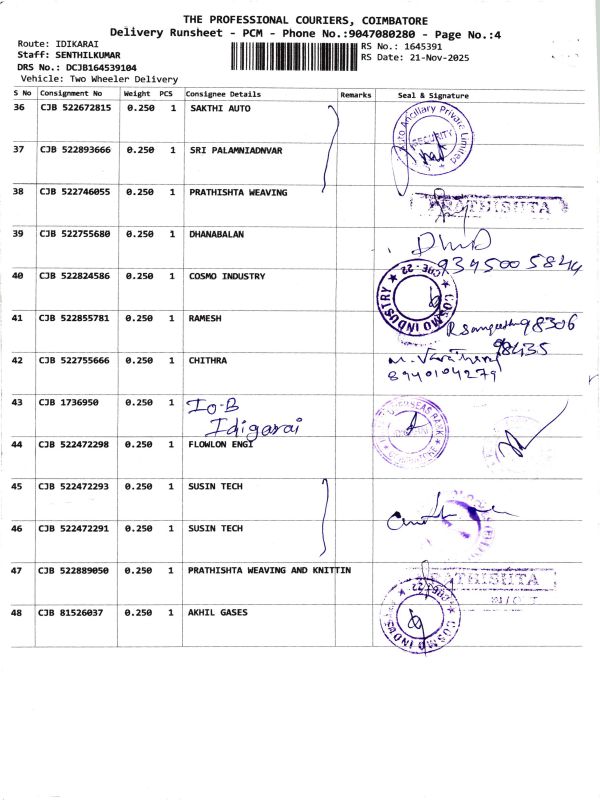 THE PROFESSIONAL COURIERS, COIMBATORE
Delivery Runsheet - PCM - Phone No.:9047080280 - Page No.:4
Route: IDIKARAI
Staff: SENTHILKUMAR
DRS No.: DCJB164539104
Vehicle: Two Wheeler Delivery
RS No.: 1645391
RS Date: 21-Nov-2025
S No Consignment No Weight PCS Consignee Details Remarks Seal & Signature
36 CJB 522672815 0.250 1 SAKTHI AUTO
Auto Ancillary Private Limited
SECURITY
37 CJB 522893666 0.250 1 SRI PALAMNIADNVAR
38 CJB 522746055 0.250 1 PRATHISHTA WEAVING
PRATHISHTA
39 CJB 522755680 0.250 1 DHANABALAN
9345005844
40 CJB 522824586 0.250 1 COSMO INDUSTRY
COSMO INDUSTRY ★ CBE-22 ★
41 CJB 522855781 0.250 1 RAMESH
98306
98435
42 CJB 522755666 0.250 1 CHITHRA
8940104279
43 CJB 1736950 0.250 1 IO-B
Idigarai
OVERSEAS BANK
44 CJB 522472298 0.250 1 FLOWLON ENGI
45 CJB 522472293 0.250 1 SUSIN TECH
46 CJB 522472291 0.250 1 SUSIN TECH
47 CJB 522889050 0.250 1 PRATHISHTA WEAVING AND KNITTIN
PRATHISHTA
48 CJB 81526037 0.250 1 AKHIL GASES
COSMO INDUSTRY ★ CBE-22 ★